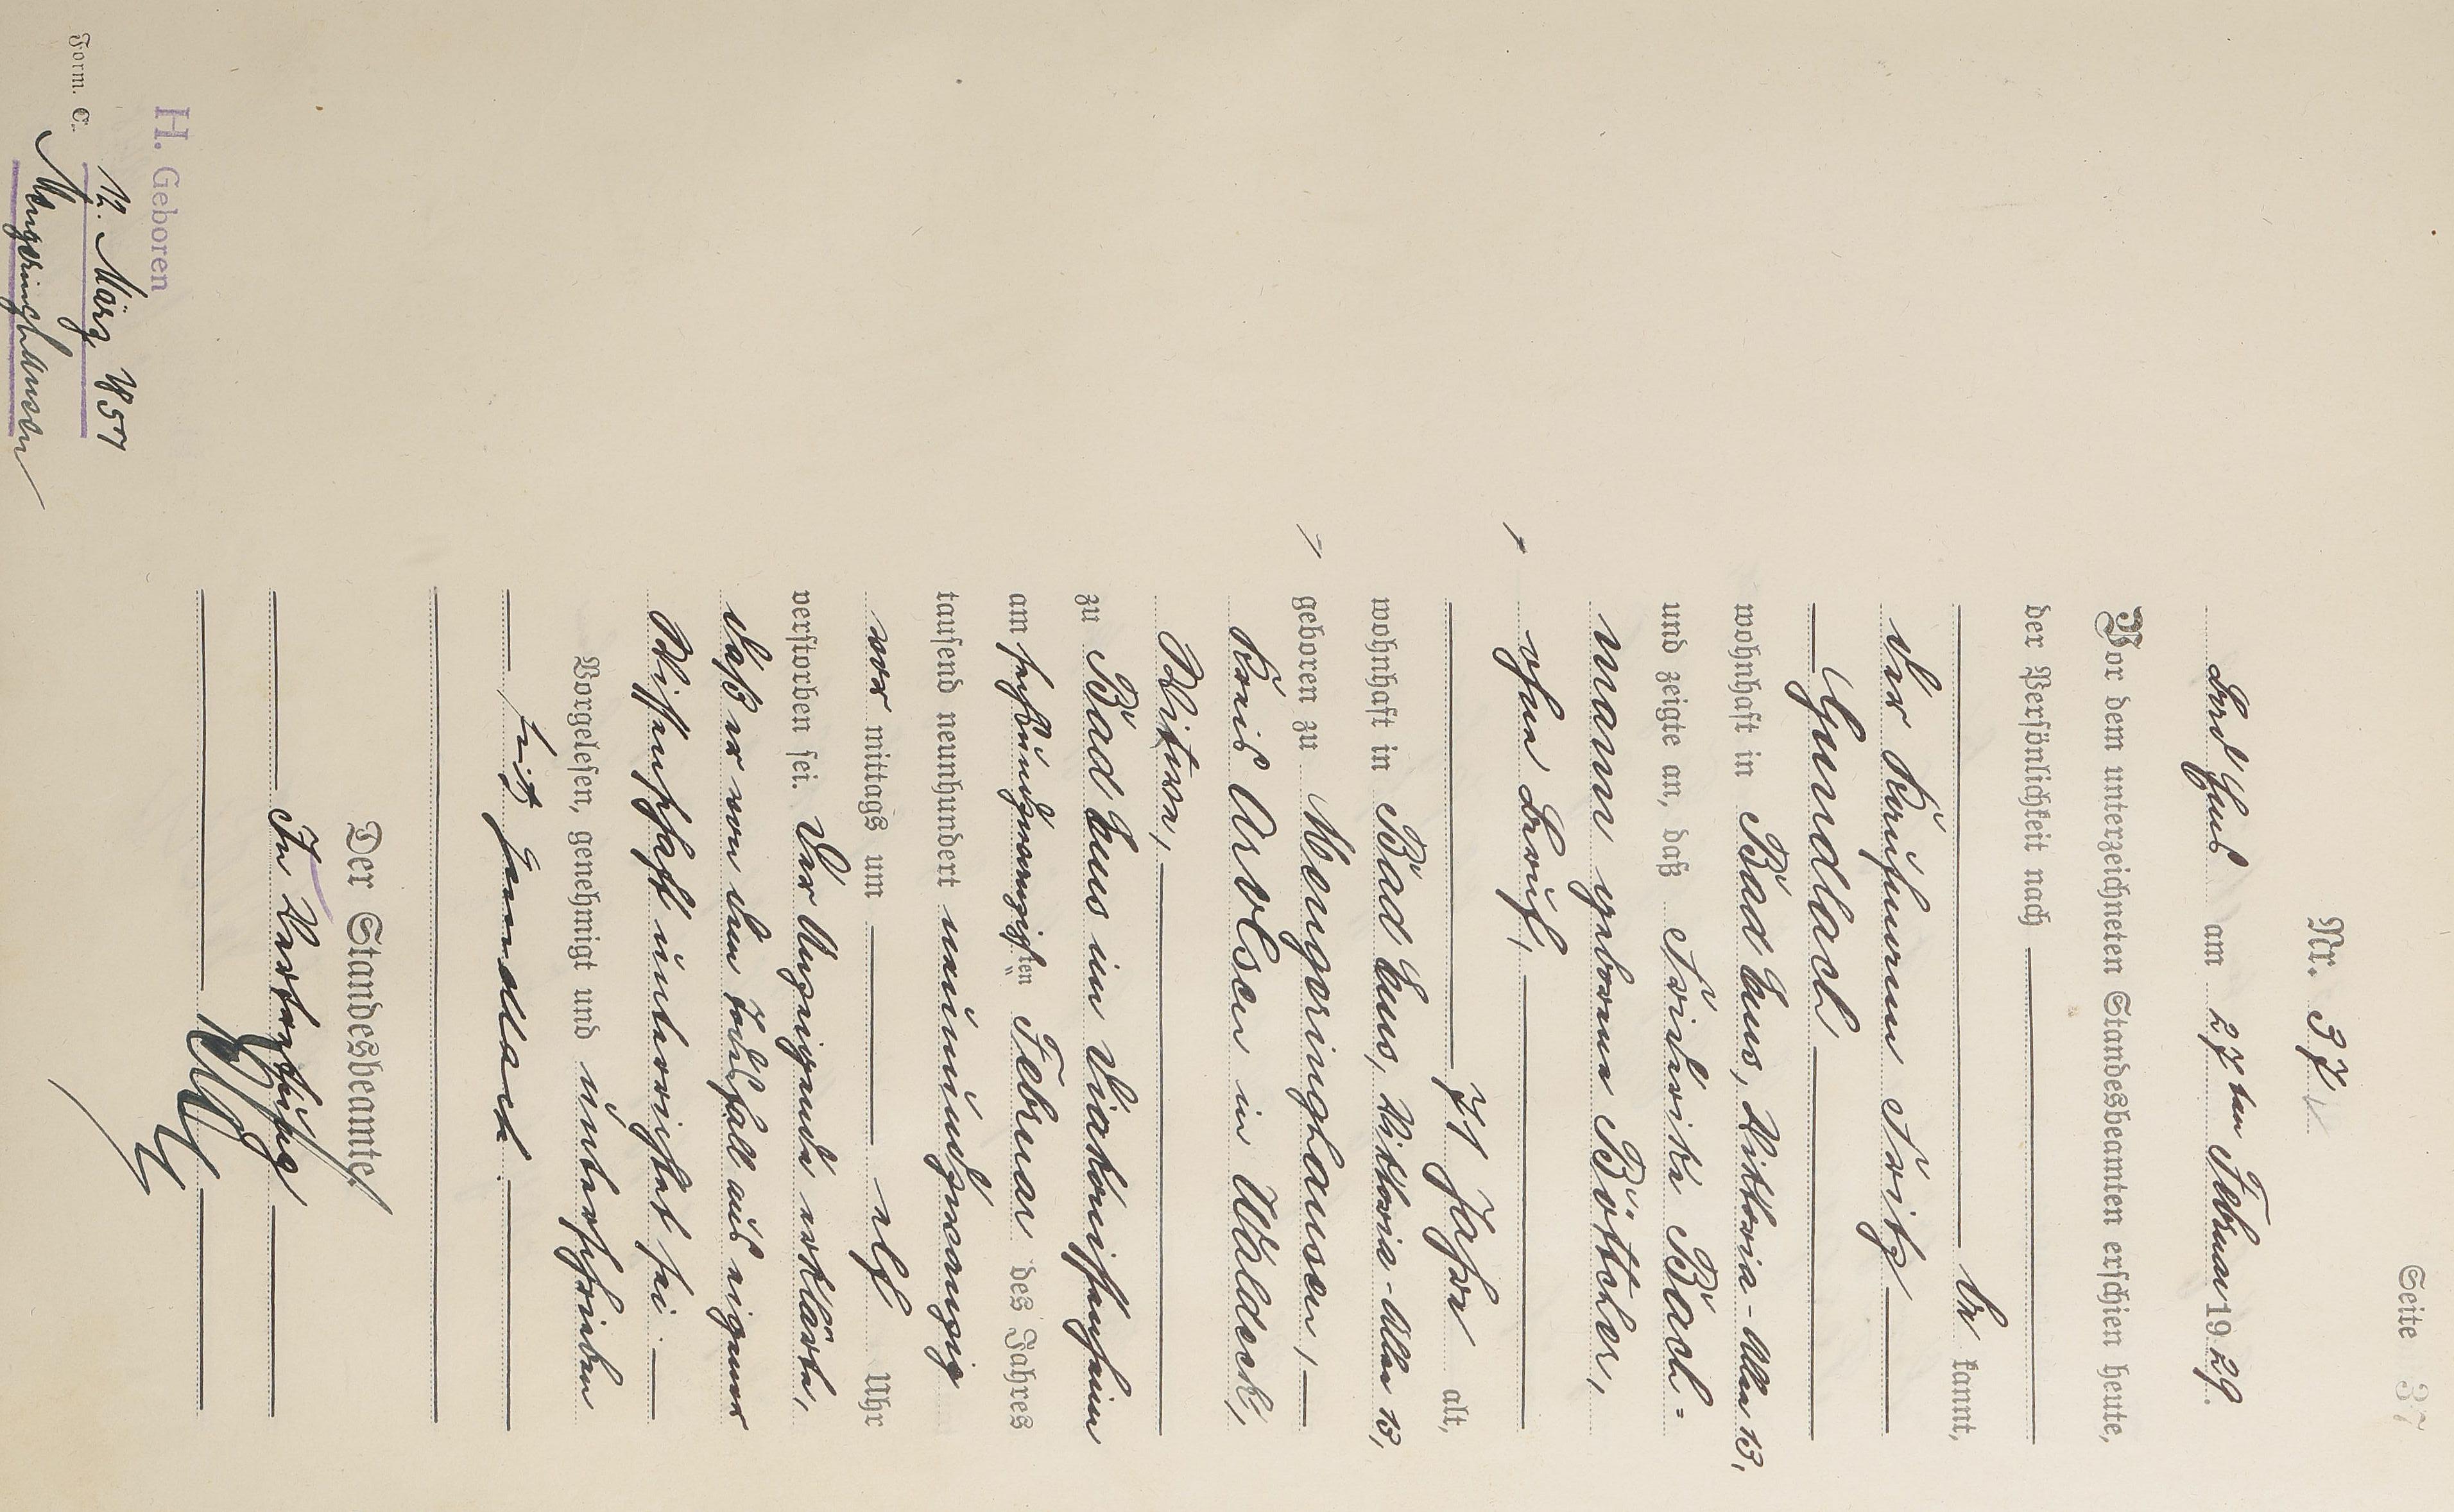 Seite 37
Nr. 37
Bad Ems am 27ten Februar 1929.
Vor dem unterzeichneten Standesbeamten erschien heute,
der Persönlichkeit nach
be kannt,
der Kaufmann Fritz
Gundlach
wohnhaft in Bad Ems, Viktoria-Allee 13,
und zeigte an, daß Friderike Bach=
mann geborene Böttcher,
ohne Beruf,
71 Jahre alt,
wohnhaft in Bad Ems, Viktoria-Allee 13,
geboren zu Mengeringhausen,
Kreis Arolsen in Waldeck,
Witwe,
zu Bad Ems im Diakonissenheim
am sechsundzwanzigsten Februar des Jahres
tausend neunhundert neunundzwanzig
vor mittags um elf Uhr
verstorben sei. Der Anzeigende erklärte,
daß er von dem Todesfall aus eigener
Wissenschaft unterrichtet sei.
Vorgelesen, genehmigt und unterschrieben
Fritz Gundlach.
Der Standesbeamte.
In Vertretung
H. Geboren
12. März 1857
Mengeringhausen
Form. C.